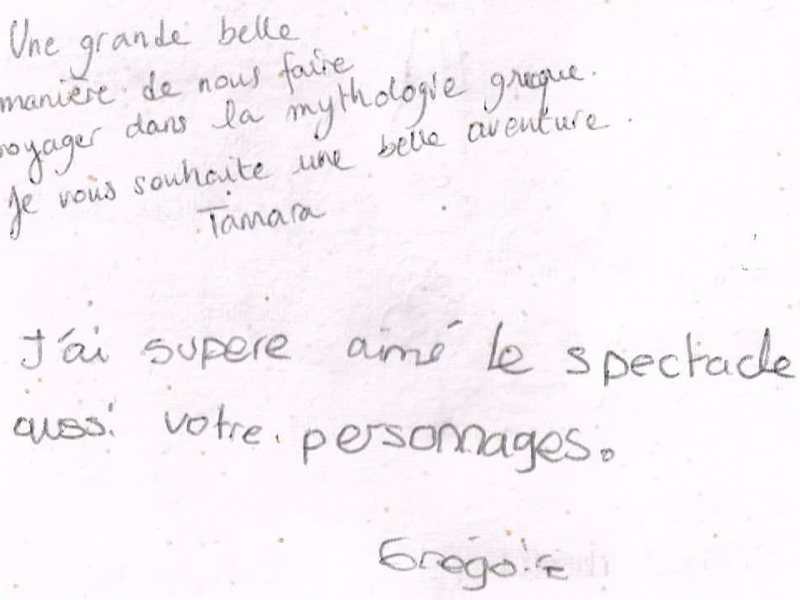 Une grande belle
manière de nous faire
voyager dans la mythologie grecque.
Je vous souhaite une belle aventure.
Tamara
J'ai supere aimé le spectacle
aussi votre personnages.
Grégoire